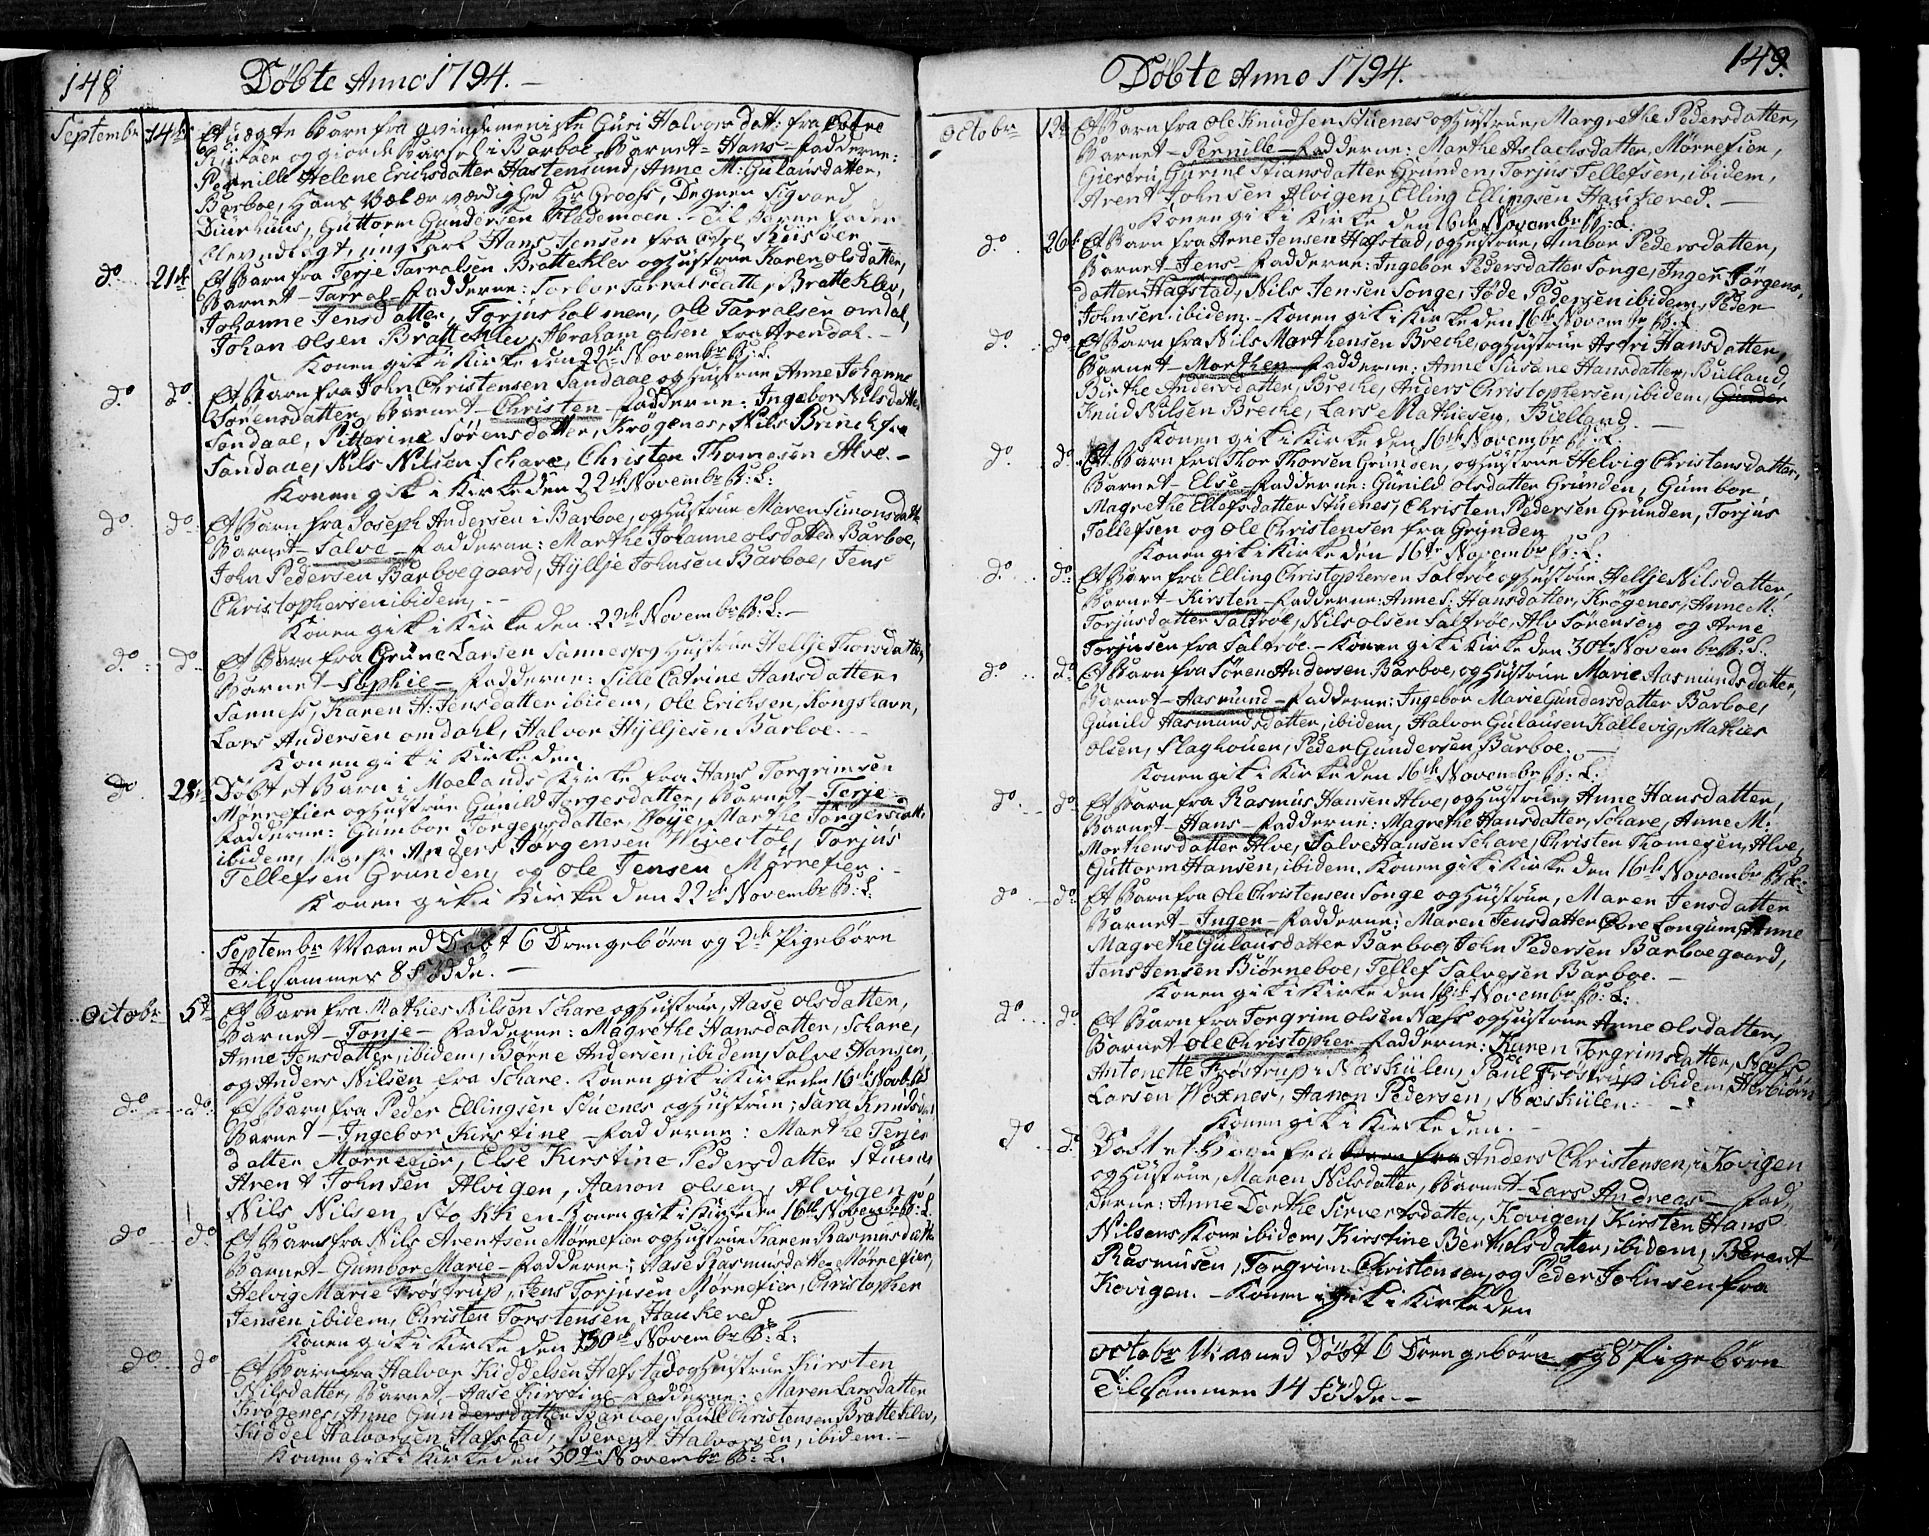 148 Döbte Anno 1794. –
Septembr 14de Et uægte Barn fra qvindemeniske Guri Halvorsdatt: fra Östre
og giorde Barsel i Barboe Barnet – Hans – Fadderne:
Pernille Helene Erichsdatter Hastensund, Anne M: Gulausdatter,
Barboe, Hans Vælærværdighed Hr Grooss, Degnen Sigvard
Diurhuus, Guttorm Gundersen Flademoen. Til Barne Fader
blev udlagt, ung Karl Hans Jensen fra
do 21de Et Barn fra Terje Tarralsen Bratteklev og Hustrue Karen olsdatter,
Barnet – Tarral – Fadderne: Torbor Tarralsdatter Bratteklev,
Johanne Jensdatter, Torjusholmen, ole Tarralsen omdal,
Johan olsen Bratteklev, Abraham olsen fra Arendal. –
Konen gik i Kirke den 22de Novembr B: L:
do do Et Barn fra John Christensen Sandaae og Hustrue Anne Johanne
Sörensdatter, Barnet – Christen – Fadderne: Ingebor Nilsdatter
Sandaae, Pitterine Sörensdatter, Krögenes, Nils Brinck fra
Sandaae, Nils Nilsen Schare, Christen Thomesen Alve. –
Konen gik i Kirke den 22de Novembr B: L:
do do Et Barn fra Joseph Andersen i Barboe, og Hustrue Maren Simonsdatt
Barnet – Salve – Fadderne: Marthe Johanne olsdatter Barboe,
John Pedersen Barboegaard, Hyllje Johnsen Barboe, Jens
Christophersen ibidem, –
Konen gik i Kirke den 22de Novembr B: L: –
do do Et Barn fra Grune Larsen Sannes og Hustrue Hellje Thorsdatter,
Barnet – Sophie – Fadderne: Sille Catrine Hansdatter
Sanness, Karen H: Jensdatter ibidem, ole Erichsen, Kongshavn,
Lars Andersen omdahl, Halvor Hylljesen Barboe. –
Konen gik i Kirke den
do 28de Döbt et Barn i Moelands Kirke fra Hans Torgrimsen
Mörrefier og Hustrue Gunild Jörgesdatter, Barnet – Terje –
Fadderne: Gumbor Jörgensdatter, Marthe Jörgensdatt:
ibidem, Anders Jörgensen Wivestöl, Torjus
Tellefsen Grunden, og ole Jensen Mörrefier. –
Konen gik i Kirke den 22de Novembr B: L.
Septembr Maaned Döbt 6 Drengebörn og 2de Pigebörn
Tilsammen 8 Födde. –
Octobr 5te Et Barn fra Mathies Nilsen Schare og Hustrue, Aase olsdatter,
Barnet – Tonje – Fadderne: Magrethe Hansdatter, Schare,
Anne Jensdatter, ibidem, Börne Andersen, ibidem, Salve Hansen,
og Anders Nilsen fra Schare. Konen gik i Kirke den 16de Novbr
do do Et Barn fra Peder Ellingsen Stuenes og Hustrue; Sara Knudsdatt
Barnet – Ingebor Kirstine – Fadderne: Marthe Terjes
datter Mörrefier, Else Kirstine Pedersdatter Stuenes
Arent Johnsen Alvigen, Aanon olsen, Alvigen,
Nils Nilsen, Stokken. Konen gik i Kirke den 16de Novembr B: L.
do do Et Barn fra Nils Arentsen Mörrefier og Hustrue Karen Rasmusdatter
Barnet – Gumbor Marie – Fadderne; Aase Rasmusdatter Mörrefier,
Helvig Marie Fröstrup, Jens Torjusen Mörrefier, Christopher
Jensen ibidem, Christen Torstensen, Haukered –
Konen gik i Kirke den 30te Novembr B: L:
do do Et Barn fra Halvor Kiddelsen Hafstad og Hustrue Kirsten
Nilsdatter, Barnet – Aase Kirstine – Fadderne: Maren Larsdatter
Krögenes, Anne Gundersdatter Barboe, Paul Christensen Bratteklev,
Kiddel Halvorsen Hafstad, Berent Halvorsen, ibidem. –
Konen gik i Kirke den 30te Novembr B: L.
Döbte Anno 1794. 149.
Octobr 12te Et Barn fra ole Knudsen Stuenes og Hustrue, Margrethe Pedersdatter,
Barnet – Pernille – Fadderne: Marthe Aslachsdatter, Mörrefier,
Giertru Gurine Stiansdatter Grunden, Torjus Tellefsen, ibidem,
Arent Johnsen Alvigen, Elling Ellingsen Haukered. –
Konen gik i Kirke den 16de Novembr B: L.
do 26de Et Barn fra Arne Jensen Hafstad, og Hustrue, Ambor Pedersdatter,
Barnet – Jens – Fadderne: Ingebor Pedersdatter Songe, Inger Jörgens,
datter Hafstad, Nils Jensen Songe, Jöde Pedersen ibidem, Peder
Johnsen ibidem. Konen gik i Kirke den 16de Novembr B: L.
do do Et Barn fra Nils Morthensen Breche, og Hustrue Astri Hansdatter,
Barnet – Morthen – Fadderne: Anne Susane Hansdatter, Bielland,
Birthe Andersdatter, Breche, Anders Christophersen, ibidem, Gunder
Knud Nilsen Breche, Lars Mathiesen, Bielland. –
Konen gik i Kirke den 16de Novembr B: L.
do do Et Barn fra Thor Thorsen Grunden, og Hustrue Helvig Christensdatter,
Barnet – Else – Fadderne: Gunild olsdatter Grunden, Gumbor
Magrethe Ellefsdatter Stuenes, Christen Pedersen Grunden, Torjus
Tellefsen og ole Christensen fra Grunden
Konen gik i Kirke den 16de Novembr B: L:
do do Et Barn fra Elling Christophersen Saltröe og Hustrue Hellje Nilsdatter,
Barnet – Kirsten – Fadderne: Anne S: Hansdatter, Krögenes, Anne M.
Torjusdatter Saltröe, Nils olsen Saltröe, Alv Sörensen og Arne
Torjusen fra Saltröe. – Konen gik i Kirke den 30te Novembr B: L.
do do Et Barn fra Sören Andersen Barboe, og Hustrue Marie Aasmundsdatter,
Barnet – Aasmund – Fadderne: Ingebor Marie Gundersdatter Barboe,
Gunild Aasmundsdatter, ibidem, Halvor Gulausen Kallevig, Mathies
olsen, Flaghouen, Peder Gundersen Barboe. –
Konen gik i Kirke den 16de Novembr B: L:
do do Et Barn fra Rasmus Hansen Alve, og Hustrue, Anne Hansdatter,
Barnet – Hans – Fadderne: Magrethe Hansdatter, Schare, Anne M:
Morthensdatter Alve, Salve Hansen Schare, Christen Thomesen, Alve,
Guttorm Hansen, ibidem. Konen gik i Kirke den 16de Novembr B: L:
do do Et Barn fra ole Christensen Songe og Hustrue, Maren Jensdatter
Barnet – Inger – Fadderne: Maren Jensdatter Övre Longum, Anne
Magrethe Gulausdatter Barboe, John Pedersen Barboegaard,
Jens Jensen Biörneboe, Tellef Salvesen Barboe. –
Konen gik i Kirke den 16de Novembr B: L:
do do Et Barn fra Torgrim olsen Næss og Hustrue Anne olsdatter,
Barnet – ole Christopher – Fadderne: Karen Torgrimsdatter, Næss
Antonette Fröstrup i Næskilen, Paul Fröstrup ibidem, Aesbiörn
Larsen Woxnes, Aanon Pedersen, Næskilen. –
Konen gik i Kirke den. –
do do Döbt et Barn fra Barn fra Anders Christensen, i Kovigen
og Hustrue, Maren Nilsdatter, Barnet – Lars Andreas – Fad,
derne: Anne Dorthe Sivertsdatter, Kovigen, Kirsten Hans
Nilsens Kone ibidem, Kirstine Berthelsdatter, ibidem, Berent
Rasmusen, Torgrim Christensen, og Peder Johnsen fra
Kovigen. – Konen gik i Kirke den
octobr Maaned Döbt 6 Drengebörn og 8te Pigebörn
Tilsammen 14 Födde. –